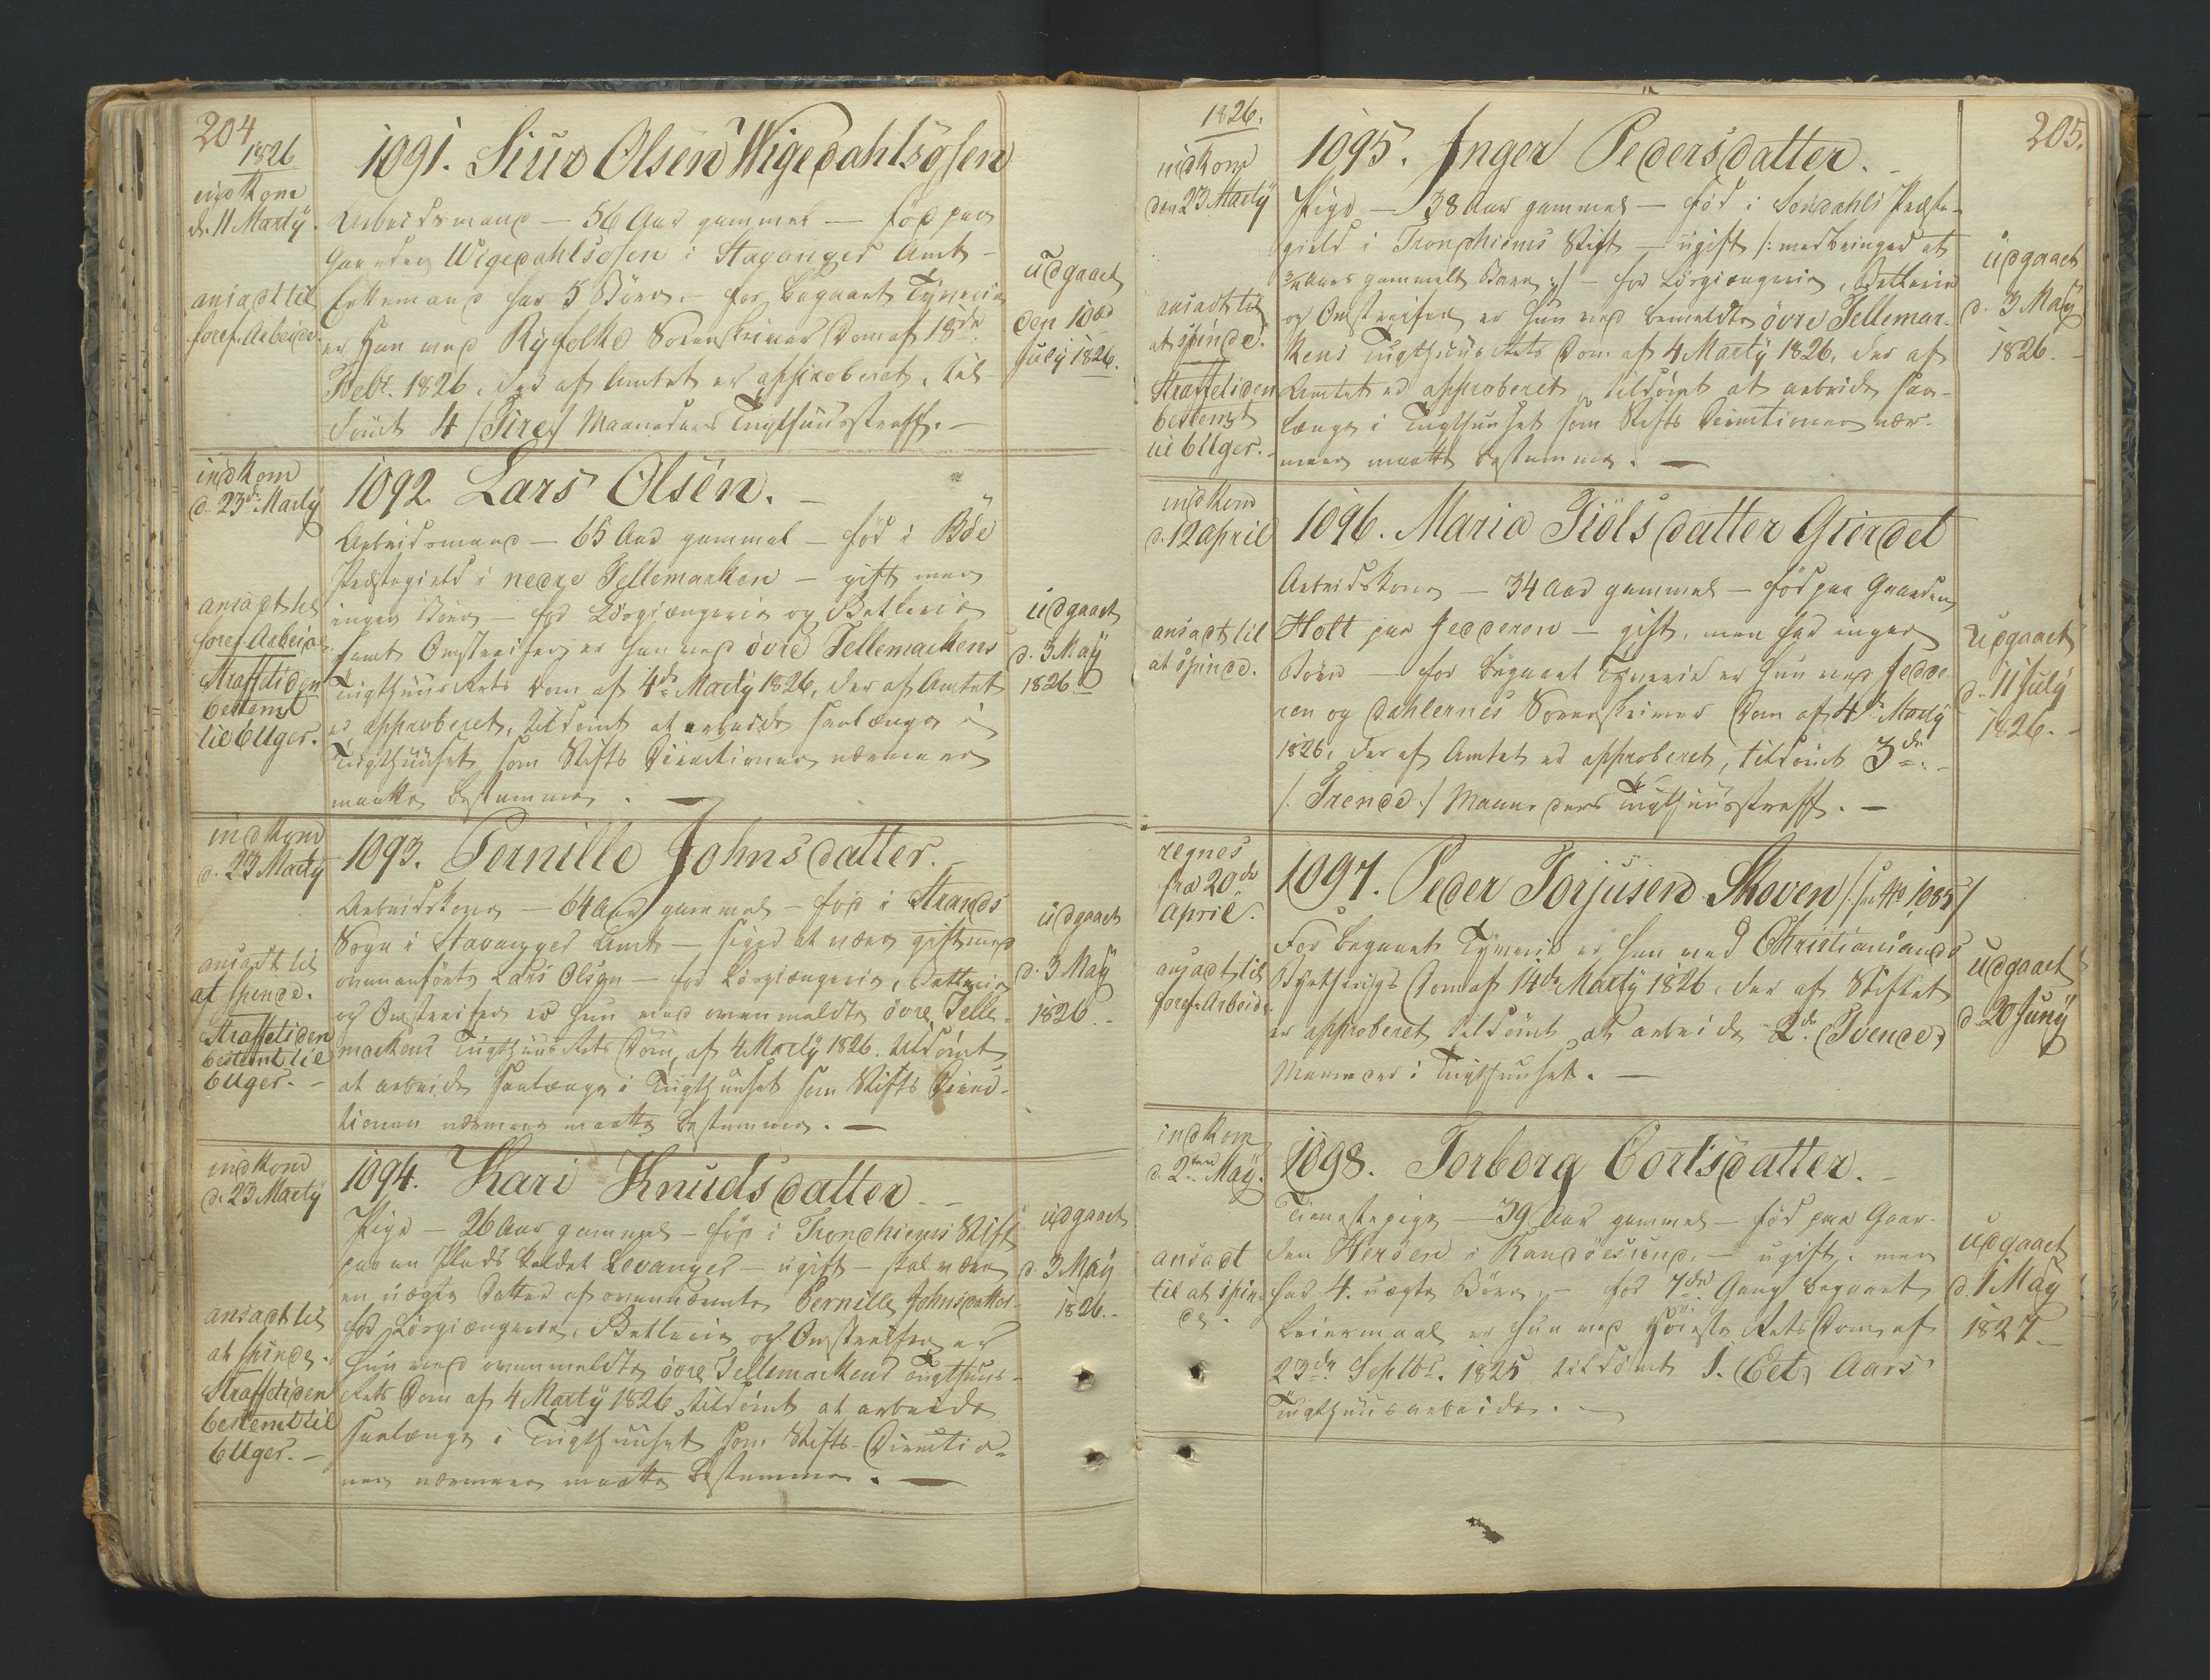 204
1826
indkom
d. 11 Martÿ.
ansadt til
foref. Arbeide
1091. Siur Olsen Wigedahlsøsen
Arbeidsmand – 56 Aar gammel – fød paa
Gaarden Wigedahlsøsen i Stavanger Amt –
Enkemand har 5 Børn. – for begaaet Tÿverie
er han ved Rÿfolke Sorenskriver Dom af 18de
Febr. 1826, der af Amtet er approberet, til-
dömt 4 /: Fire :/ Maaneders Tugthuusstraff. –
udgaaet
den 10de
Julÿ 1826.
indkom
d. 23de Martÿ
ansadt til
foref. Arbeide
Straffetiden
bestemt
til 6 Uger.
1092. Lars Olsen. –
Arbeidsmand – 65 Aar gammel – fød i Böe
Præstegield i nedre Tellemarken – gift men
ingen Børn – for Lösgiængerie og Betlerie
samt Omstreifen er han ved övre Tellemarkens
Tugthuus Rets Dom af 4de Martÿ 1826, der af Amtet
er approberet, tildömt at arbeide saalænge i
Tugthuuset som Stifts Directionen nærmere
maatte bestemme. –
udgaaet
d. 3 Maÿ
1826
indkom
d. 23 Martÿ
ansadt til
at spinde.
Straffetiden
bestemt til
6 Uger. –
1093. Pernille Johnsdatter. –
Arbeidskone – 64 Aar gammel – fød i Strands
Sogn i Stavanger Amt – siger at være gift med
ovenanførte Lars Olsen – for Lösgiængerie, Betlerie
og Omstreifen er hun ved ovenmeldte övre Telle-
markens Tugthuus Rets Dom, af 4 Martÿ 1826. tildömt
at arbeide saalænge i Tugthuuset som Stifts Direc-
tionen nærmere maatte bestemme. –
udgaaet
d. 3 Maÿ
1826. –
indkom
d. 23 Martÿ
ansadt til
at spinde.
Straffetiden
bestemt til
6 Uger. –
1094. Kari Knudsdatter –
Pige – 26 Aar gammel – fød i Trondhiems Stift
paa en Plads kaldet Levanger – ugift – skal være
en uægte Datter af ovennævnte Pernille Johnsdatter
for Lösgiængerie, Betlerie og Omstreifen er
hun ved ovenmeldte övre Tellemarkens Tugthuus-
Rets Dom af 4 Martÿ 1826 tildömt at arbeide
saalænge i Tugthuuset som Stifts Directio-
nen nærmere maatte bestemme. –
udgaaet
d. 3 Maÿ
1826. –
205.
1826.
indkom
den 23 Martÿ
ansadt til
at spinde.
Straffetiden
bestemt
til 6 Uger. –
1095. Inger Pedersdatter. –
Pige – 38 Aar gammel – fød i Præste-
gield i Trondhiems Stift – ugift /: medbringer et
3/4 Aars gammelt Barn :/ – for Lösgiængerie, Betlerie
og Omstreifen er hun ved bemeldte övre Tellemar-
kens Tugthuus Rets Dom af 4 Martÿ 1826, der af
Amtet er approberet, tildömt at arbeide saa-
længe i Tugthuuset som Stifts Directionen nær-
mere maatte bestemme. –
udgaaet
d. 3 Maÿ
1826. –
indkom
d. 12 April
ansadt til
at spinde.
1096. Maria Fiölsdatter Gierdet
Arbeidskone – 34 Aar gammel – fød paa Gaarden
Holt paa Jedderen – gift, men har ingen
Børn – for begaaet Tÿverie er hun ved Jedde-
ren og Dahlernes Sorenskriver Dom af 4de Martÿ
1826, der af Amtet er approberet, tildömt 3de. –
/: Trende :/ Maaneders Tugthuusstraff. –
udgaaet
d. 11 Julÿ
1826. –
regnes
fra 20de
April.
ansadt til
foref. Arbeide
1097. Peder Torjusen Skoven /: see No 1085 :/
For begaaet Tÿverie er han ved Christiansands
Bÿethings Dom af 14de Martÿ 1826, der af Stiftet
er approberet tildömt at arbeide 2de (Tvende)
Maaneder i Tugthuuset. –
udgaaet
d. 20 Junÿ
indkom
d. 2den Maÿ.
ansadt
til at spin-
de.
1098. Torborg Cortsdatter. –
Tienestepige – 39 Aar gammel – fød paa Gaar-
den Herøen i Randöesund, – ugift, men
har 4. uægte Børn, – for 7de Gang begaaet
Leiermaal er hun ved Höieste Rets Dom, af
23de Septbr. 1825 tildömt 1. (Eet) Aars
Tugthuusarbeide. –
udgaaet
d. 1 Maÿ
1827. –